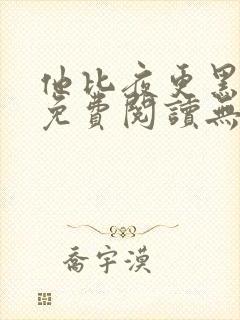 他比夜更黑
免費閱讀無
喬宇漠